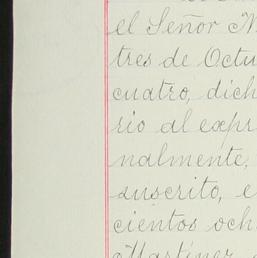 el Señor M
tres de Octu
cuatro, dich
rio al expr
nalmente,
suscrito, e
cientos och
Martínez